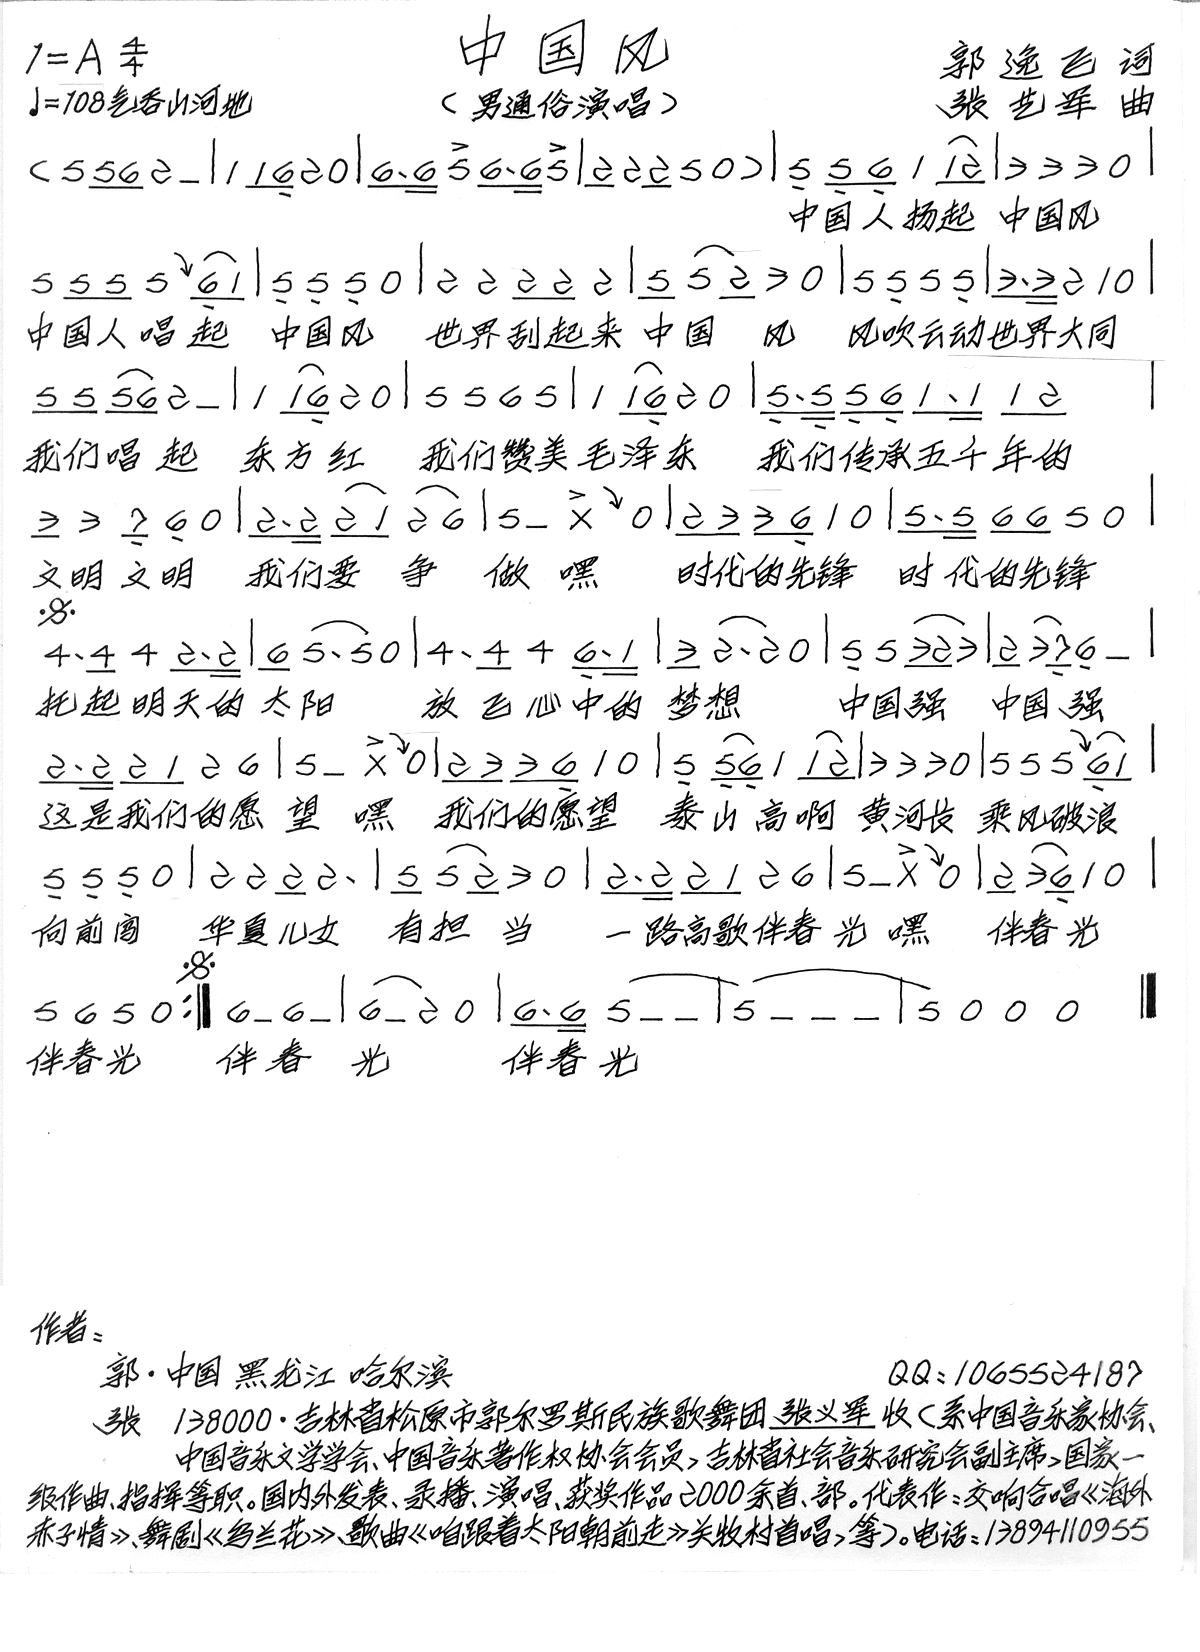 中国风
1=A 4/4
♩=108气吞山河地
(男通俗演唱)
郭逸飞 词
张艺军 曲
(5 5 6 2 - | 1 1 6 2 0 | 6·6 5 6·6 5 | 2 2 2 5 0) | 5 5 6 1 1 2 | 3 3 3 0 |
中国人扬起 中国风
5 5 5 5 6 1 | 5 5 5 0 | 2 2 2 2 2 | 5 5 2 3 0 | 5 5 5 5 | 3·3 2 1 0 |
中国人唱起 中国风 世界刮起来中国 风 风吹云动世界大同
5 5 5 6 2 - | 1 1 6 2 0 | 5 5 6 5 | 1 1 6 2 0 | 5·5 5 6 1·1 1 2 |
我们唱起 东方红 我们赞美毛泽东 我们传承五千年的
3 3 7 6 0 | 2·2 2 1 2 6 | 5 - X 0 | 2 3 3 6 1 0 | 5·5 6 6 5 0 |
文明文明 我们要 争 做 嘿 时代的先锋 时代的先锋
4·4 4 2·2 | 6 5·5 0 | 4·4 4 6·1 | 3 2·2 0 | 5 5 3 2 3 | 2 3 7 6 - |
托起明天的太阳 放飞心中的梦想 中国强 中国强
2·2 2 1 2 6 | 5 - X 0 | 2 3 3 6 1 0 | 5 5 6 1 1 2 | 3 3 3 0 | 5 5 5 6 1 |
这是我们的愿望 嘿 我们的愿望 泰山高啊 黄河长 乘风破浪
5 5 5 0 | 2 2 2 2· | 5 5 2 3 0 | 2·2 2 1 2 6 | 5 - X 0 | 2 3 6 1 0 |
向前闯 华夏儿女 有担 当 一路高歌伴春光 嘿 伴春光
5 6 5 0 :‖ 6 - 6 - | 6 - 2 0 | 6·6 5 - - | 5 - - - | 5 0 0 0 ‖
伴春光 伴春 光 伴春光
作者:
郭·中国 黑龙江 哈尔滨 QQ:1065524187
张 138000·吉林省松原市郭尔罗斯民族歌舞团 张义军 收(系中国音乐家协会、
中国音乐文学学会、中国音乐著作权协会会员,吉林省社会音乐研究会副主席,国家一
级作曲、指挥等职。国内外发表、录播、演唱、获奖作品2000余首、部。代表作:交响合唱《海外
赤子情》、舞剧《乌兰花》、歌曲《咱跟着太阳朝前走》关牧村首唱,等)。电话:13894110955